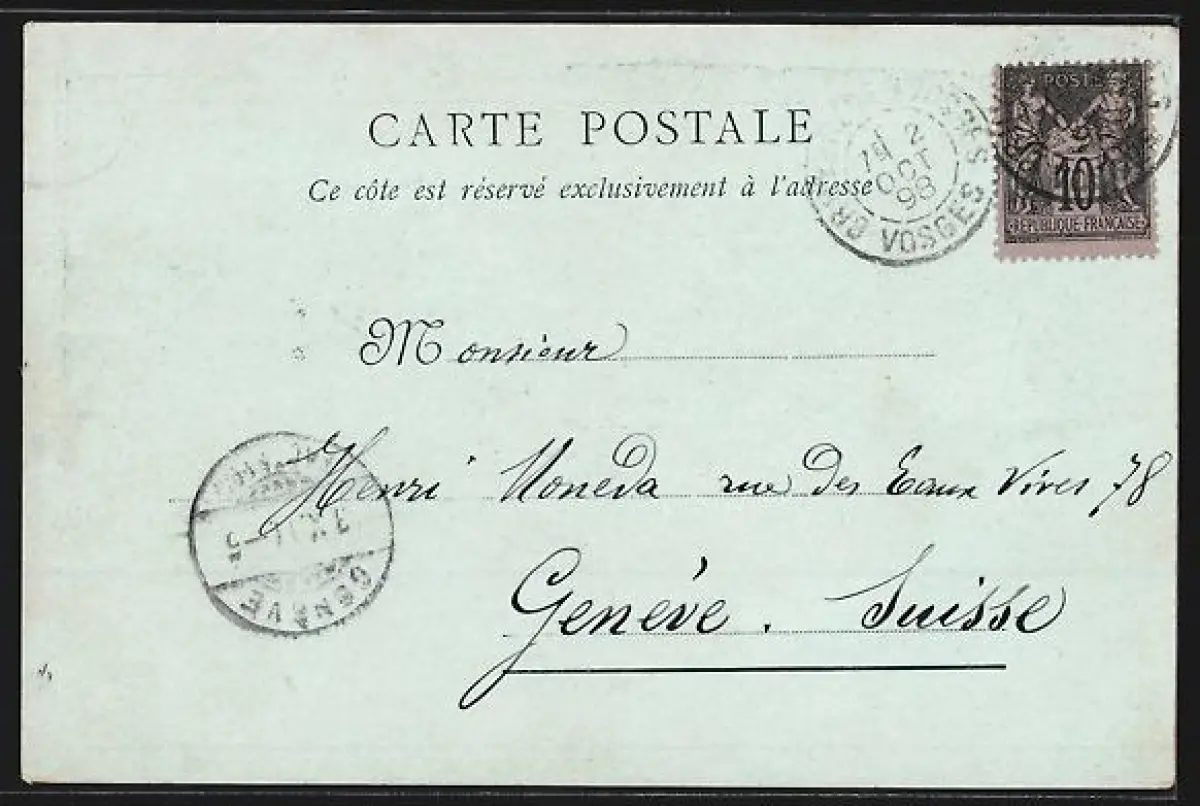 CARTE POSTALE
Ce côte est réservé exclusivement à l'adresse
2
OCT
98
VOSGES
POSTE
10
REPUBLIQUE FRANÇAISE
Monsieur
Henri Moneda rue des Eaux Vives 78
Genève. Suisse
GENÈVE